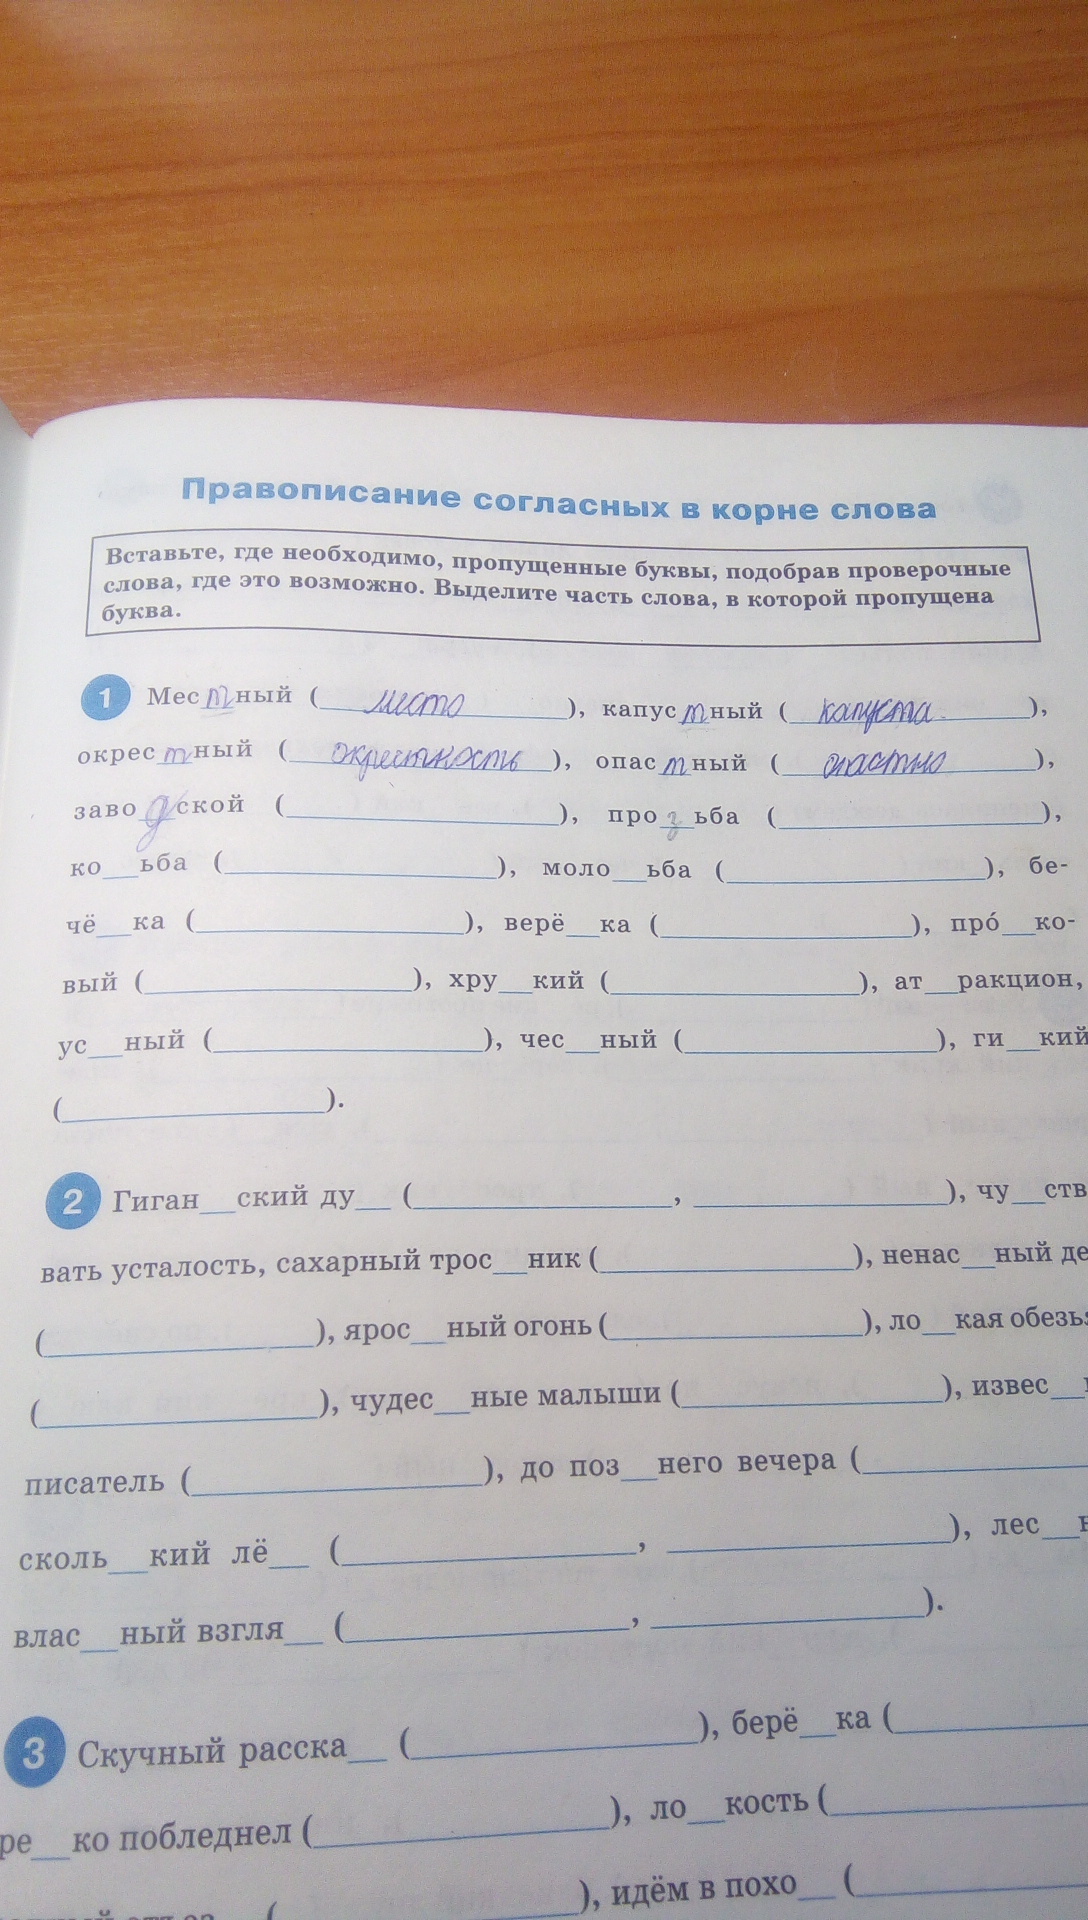 Правописание согласных в корне слова
Вставьте, где необходимо, пропущенные буквы, подобрав проверочные
слова, где это возможно. Выделите часть слова, в которой пропущена
буква.
1 Местный (место), капустный (капуста),
окрестный (окрестность), опастный (опастно),
заводской (____), прозьба (____),
ко__ьба (____), моло__ьба (____), бе-
чё__ка (____), верё__ка (____), про́__ко-
вый (____), хру__кий (____), ат__ракцион,
ус__ный (____), чес__ный (____), ги__кий
(____).
2 Гиган__ский ду__ (____, ____), чу__ств
вать усталость, сахарный трос__ник (____), ненас__ный де
(____), ярос__ный огонь (____), ло__кая обезь
(____), чудес__ные малыши (____), извес__
писатель (____), до поз__него вечера (____
сколь__кий лё__ (____, ____), лес__
влас__ный взгля__ (____, ____).
3 Скучный расска__ (____), берё__ка (____
ре__ко побледнел (____), ло__кость (____
(____), идём в похо__ (____